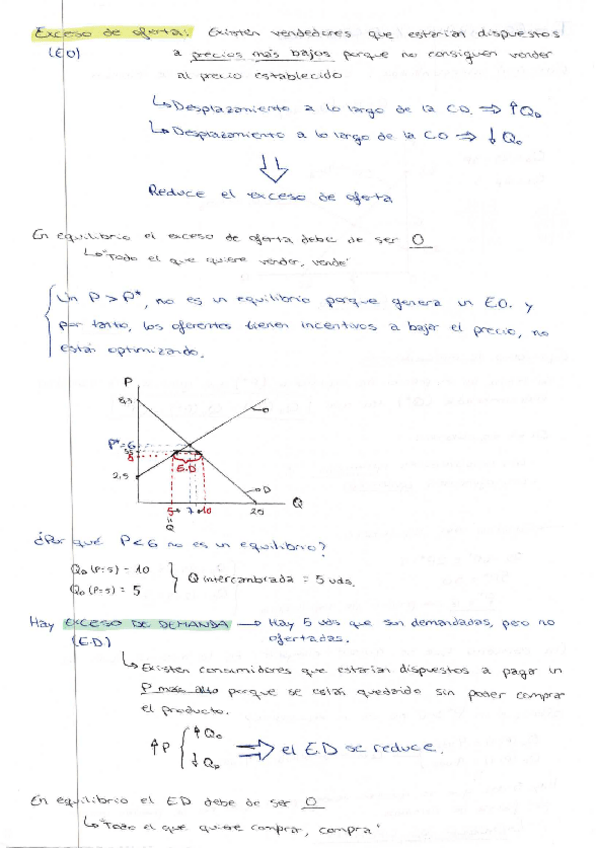 Exceso de oferta: Existen vendedores que estarían dispuestos
(EO) a precios más bajos porque no consiguen vender
al precio establecido
↳ Desplazamiento a lo largo de la CD. ⇒ ↑QD
↳ Desplazamiento a lo largo de la CO ⇒ ↓Qo
Reduce el exceso de oferta
En equilibrio el exceso de oferta debe de ser 0
↳ "Todo el que quiere vender, vende"
Un P > P*, no es un equilibrio porque genera un E.O. y
por tanto, los oferentes tienen incentivos a bajar el precio, no
están optimizando.
P
8,3
O
P*=6
5
E.D
2,5
D
5 7 10 20 Q
=
Q
¿Por qué P<6 no es un equilibrio?
QD (P=5) = 10
Qo (P=5) = 5
Q intercambiada = 5 uds.
Hay EXCESO DE DEMANDA → Hay 5 uds que son demandadas, pero no
(E.D) ofertadas.
↳ Existen consumidores que estarían dispuestos a pagar un
P más alto porque se están quedando sin poder comprar
el producto.
↑P { ↑Qo
↓QD ⇒ el E.D se reduce.
En equilibrio el ED debe de ser 0
↳ "Todo el que quiere comprar, compra"